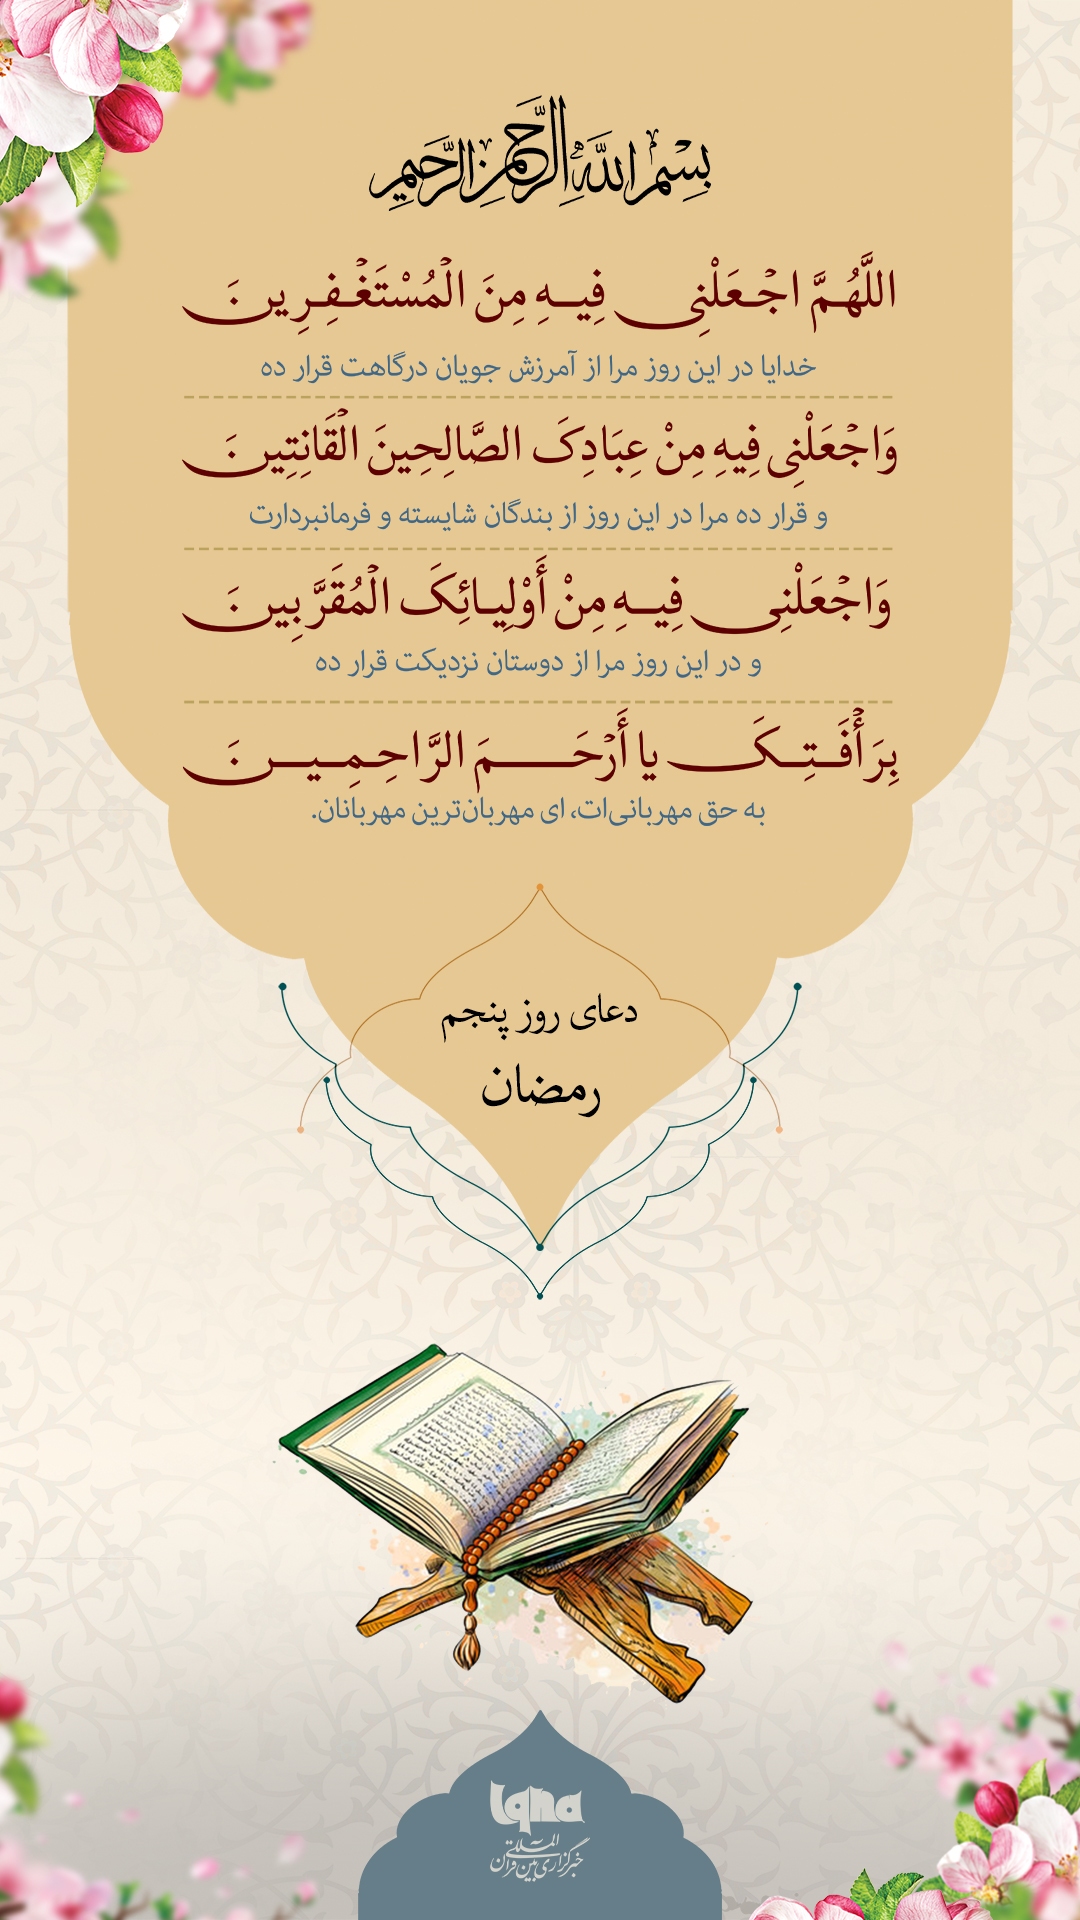 بِسْمِ اللَّهِ الرَّحْمَٰنِ الرَّحِيمِ
اللَّهُمَّ اجْعَلْنِی فِیهِ مِنَ الْمُسْتَغْفِرِینَ
خدایا در این روز مرا از آمرزش جویان درگاهت قرار ده
وَاجْعَلْنِی فِیهِ مِنْ عِبَادِکَ الصَّالِحِینَ الْقَانِتِینَ
و قرار ده مرا در این روز از بندگان شایسته و فرمانبردارت
وَاجْعَلْنِی فِیهِ مِنْ أَوْلِیَائِکَ الْمُقَرَّبِینَ
و در این روز مرا از دوستان نزدیکت قرار ده
بِرَأْفَتِکَ یا أَرْحَمَ الرَّاحِمِینَ
به حق مهربانی‌ات، ای مهربان‌ترین مهربانان.
دعای روز پنجم
رمضان
iqna
خبرگزاری بین المللی قرآن